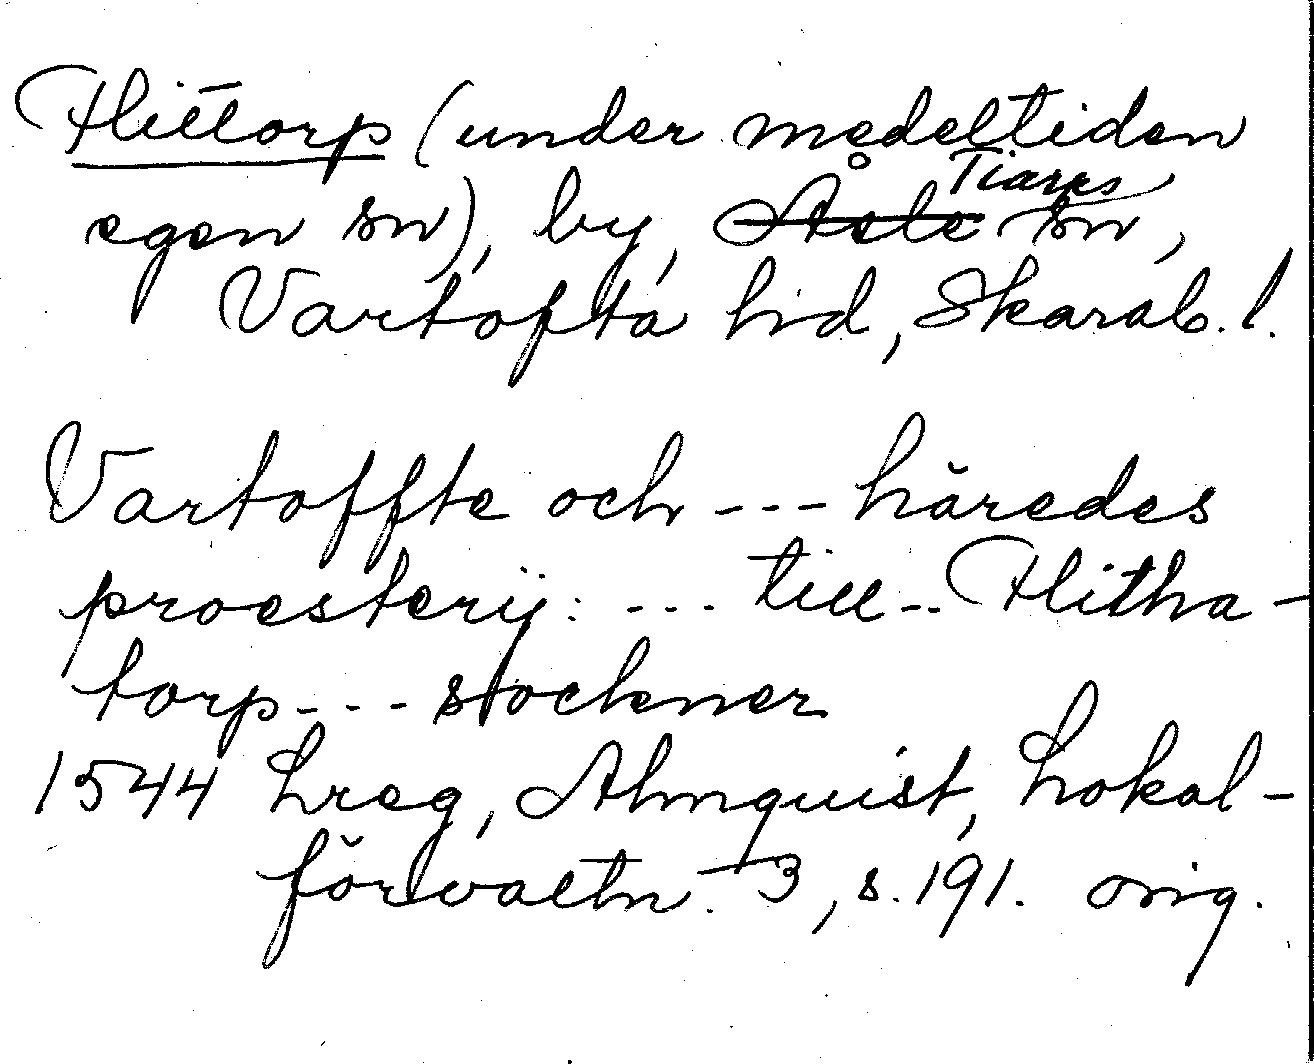 Hittorp (under medeltiden
egen sn), by, Åsle Tiarps sn,
Vartofta hd, Skarab. l.
Vartoffte och --- häredes
proesterij: --- till -- Hitha-
torp --- stockner
1544 Lreg, Almquist, Lokal-
förvaltn. 3, s. 191. orig.